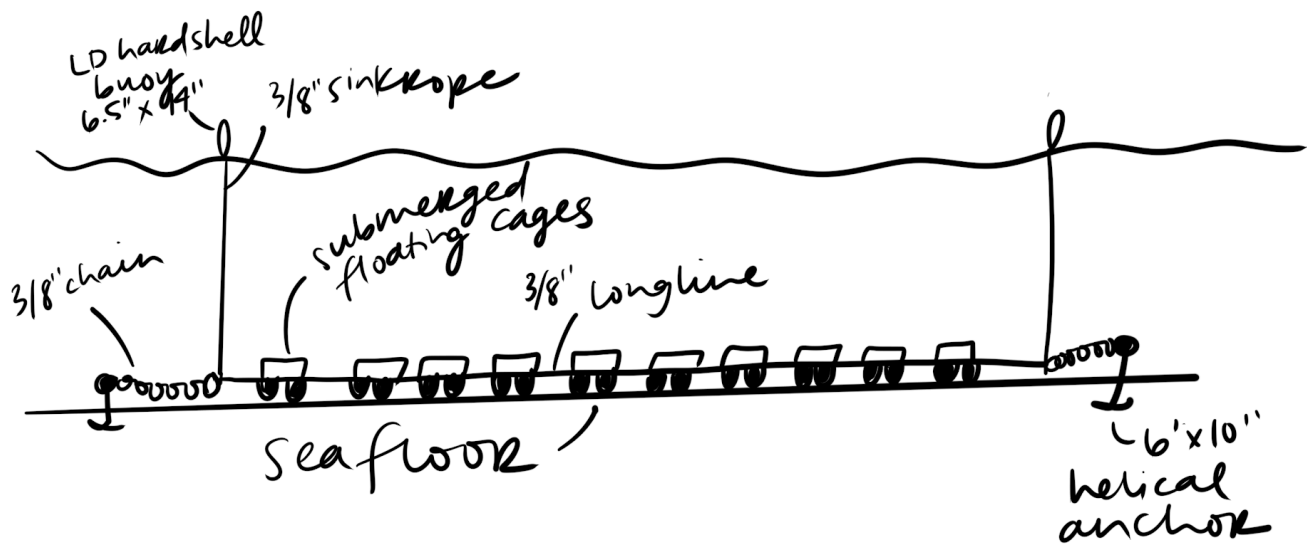 LD hardshell
buoy
6.5" x 14"
3/8" sinkrope
submerged
floating cages
3/8" chain
3/8" longline
seafloor
6' x 10"
helical
anchor